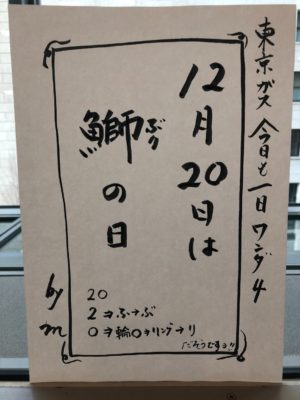 東京ガス 今日も一日ワンダ4
12月20日は
鰤の日
ぶり
20
2⇒ふ→ぶ
0⇒輪○⇒リング→リ
だそうですョ!!
by m